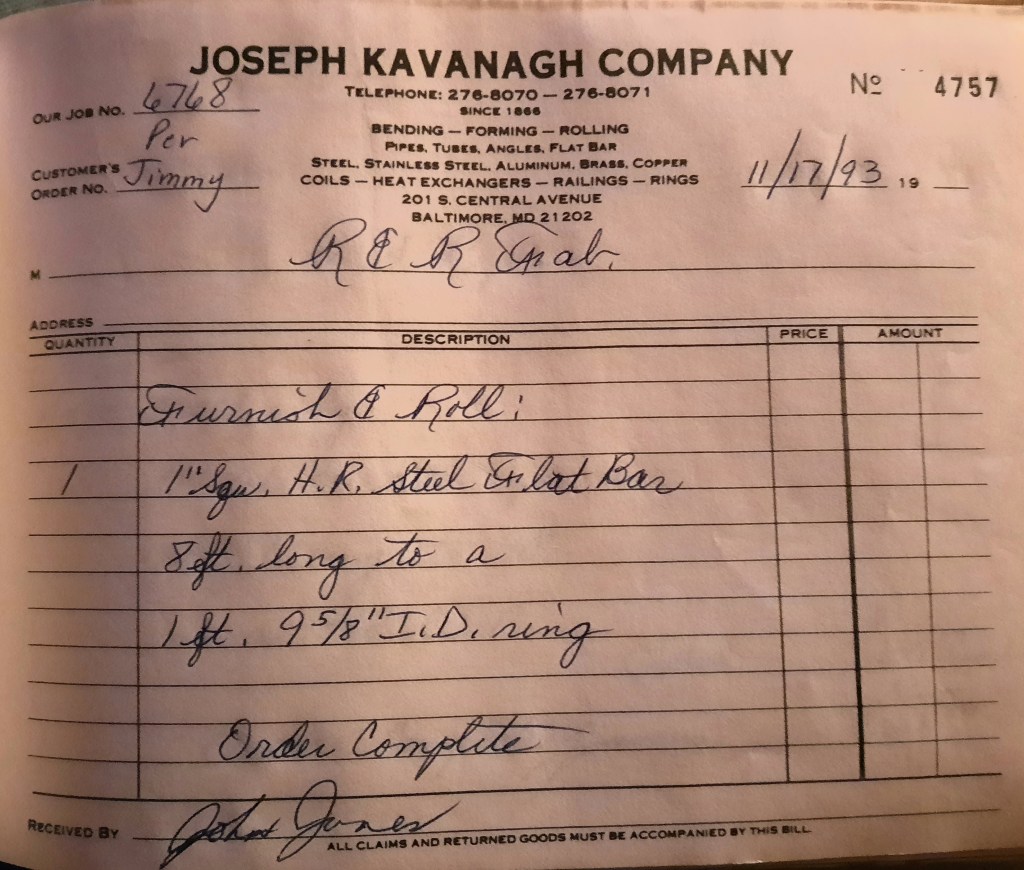 JOSEPH KAVANAGH COMPANY
Nº 4757
TELEPHONE: 276-8070 — 276-8071
OUR JOB NO. 6768
SINCE 1866
BENDING — FORMING — ROLLING
Per
PIPES, TUBES, ANGLES, FLAT BAR
CUSTOMER'S ORDER NO. Jimmy
STEEL, STAINLESS STEEL, ALUMINUM, BRASS, COPPER
COILS — HEAT EXCHANGERS — RAILINGS — RINGS
11/17/93 19
201 S. CENTRAL AVENUE
BALTIMORE, MD 21202
M R & R Fab.
ADDRESS
QUANTITY DESCRIPTION PRICE AMOUNT
Furnish & Roll:
1 1" Squ. H.R. Steel Flat Bar
8 ft. long to a
1 ft. 9 5/8" I.D. ring
Order Complete
RECEIVED BY John Jones
ALL CLAIMS AND RETURNED GOODS MUST BE ACCOMPANIED BY THIS BILL